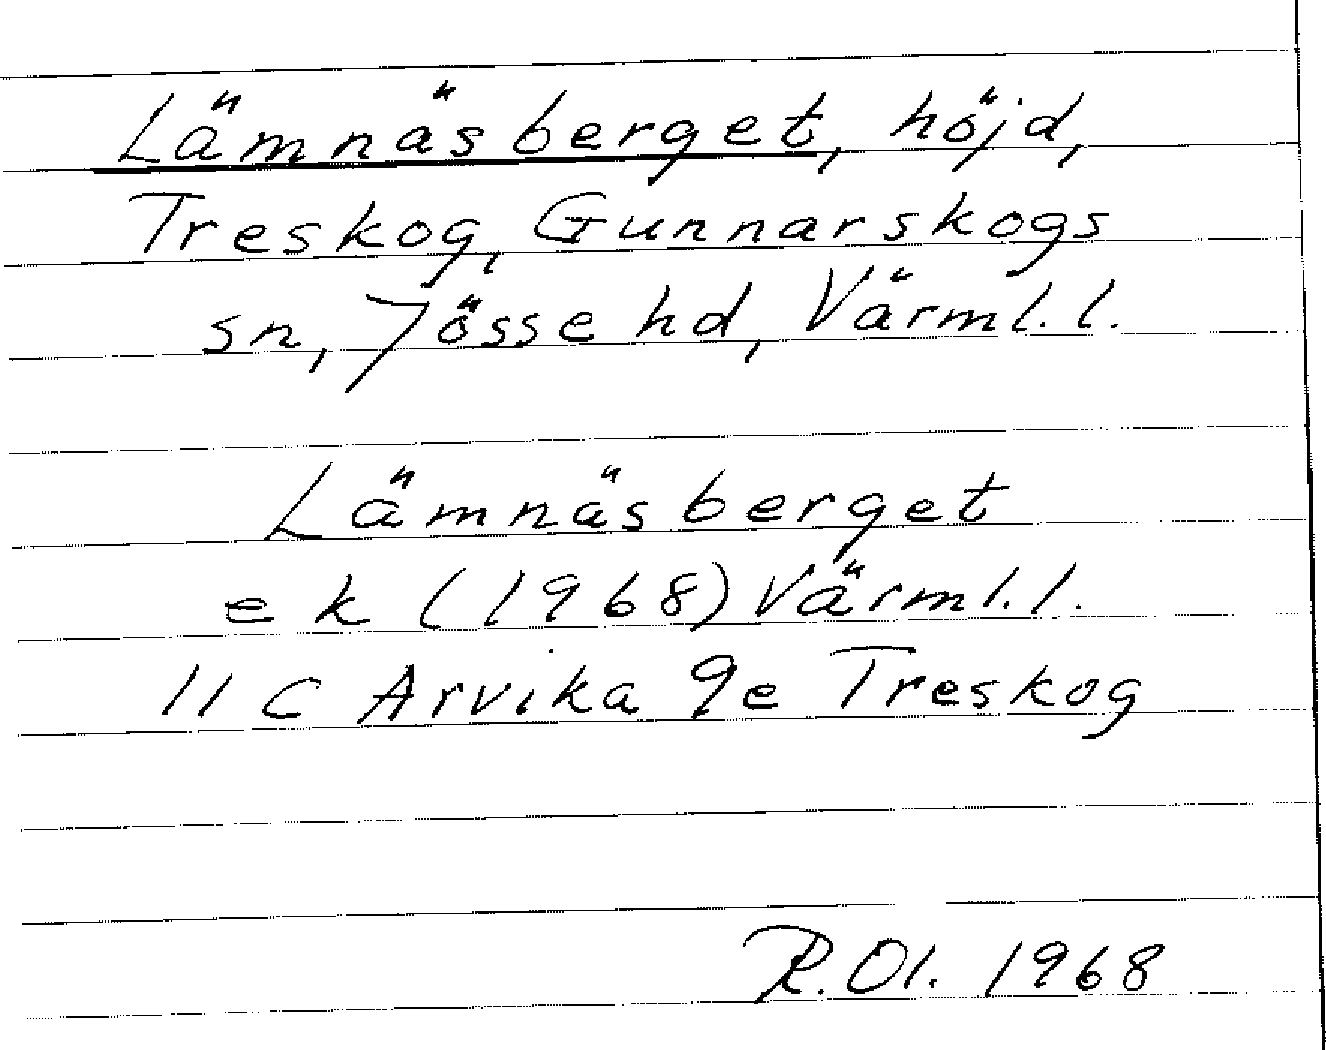 Lämnäsberget, höjd,
Treskog, Gunnarskogs
sn, Jösse hd, Värml. l.
Lämnäsberget
e k (1968) Värml. l.
11 C Arvika 9e Treskog
R. Ol. 1968